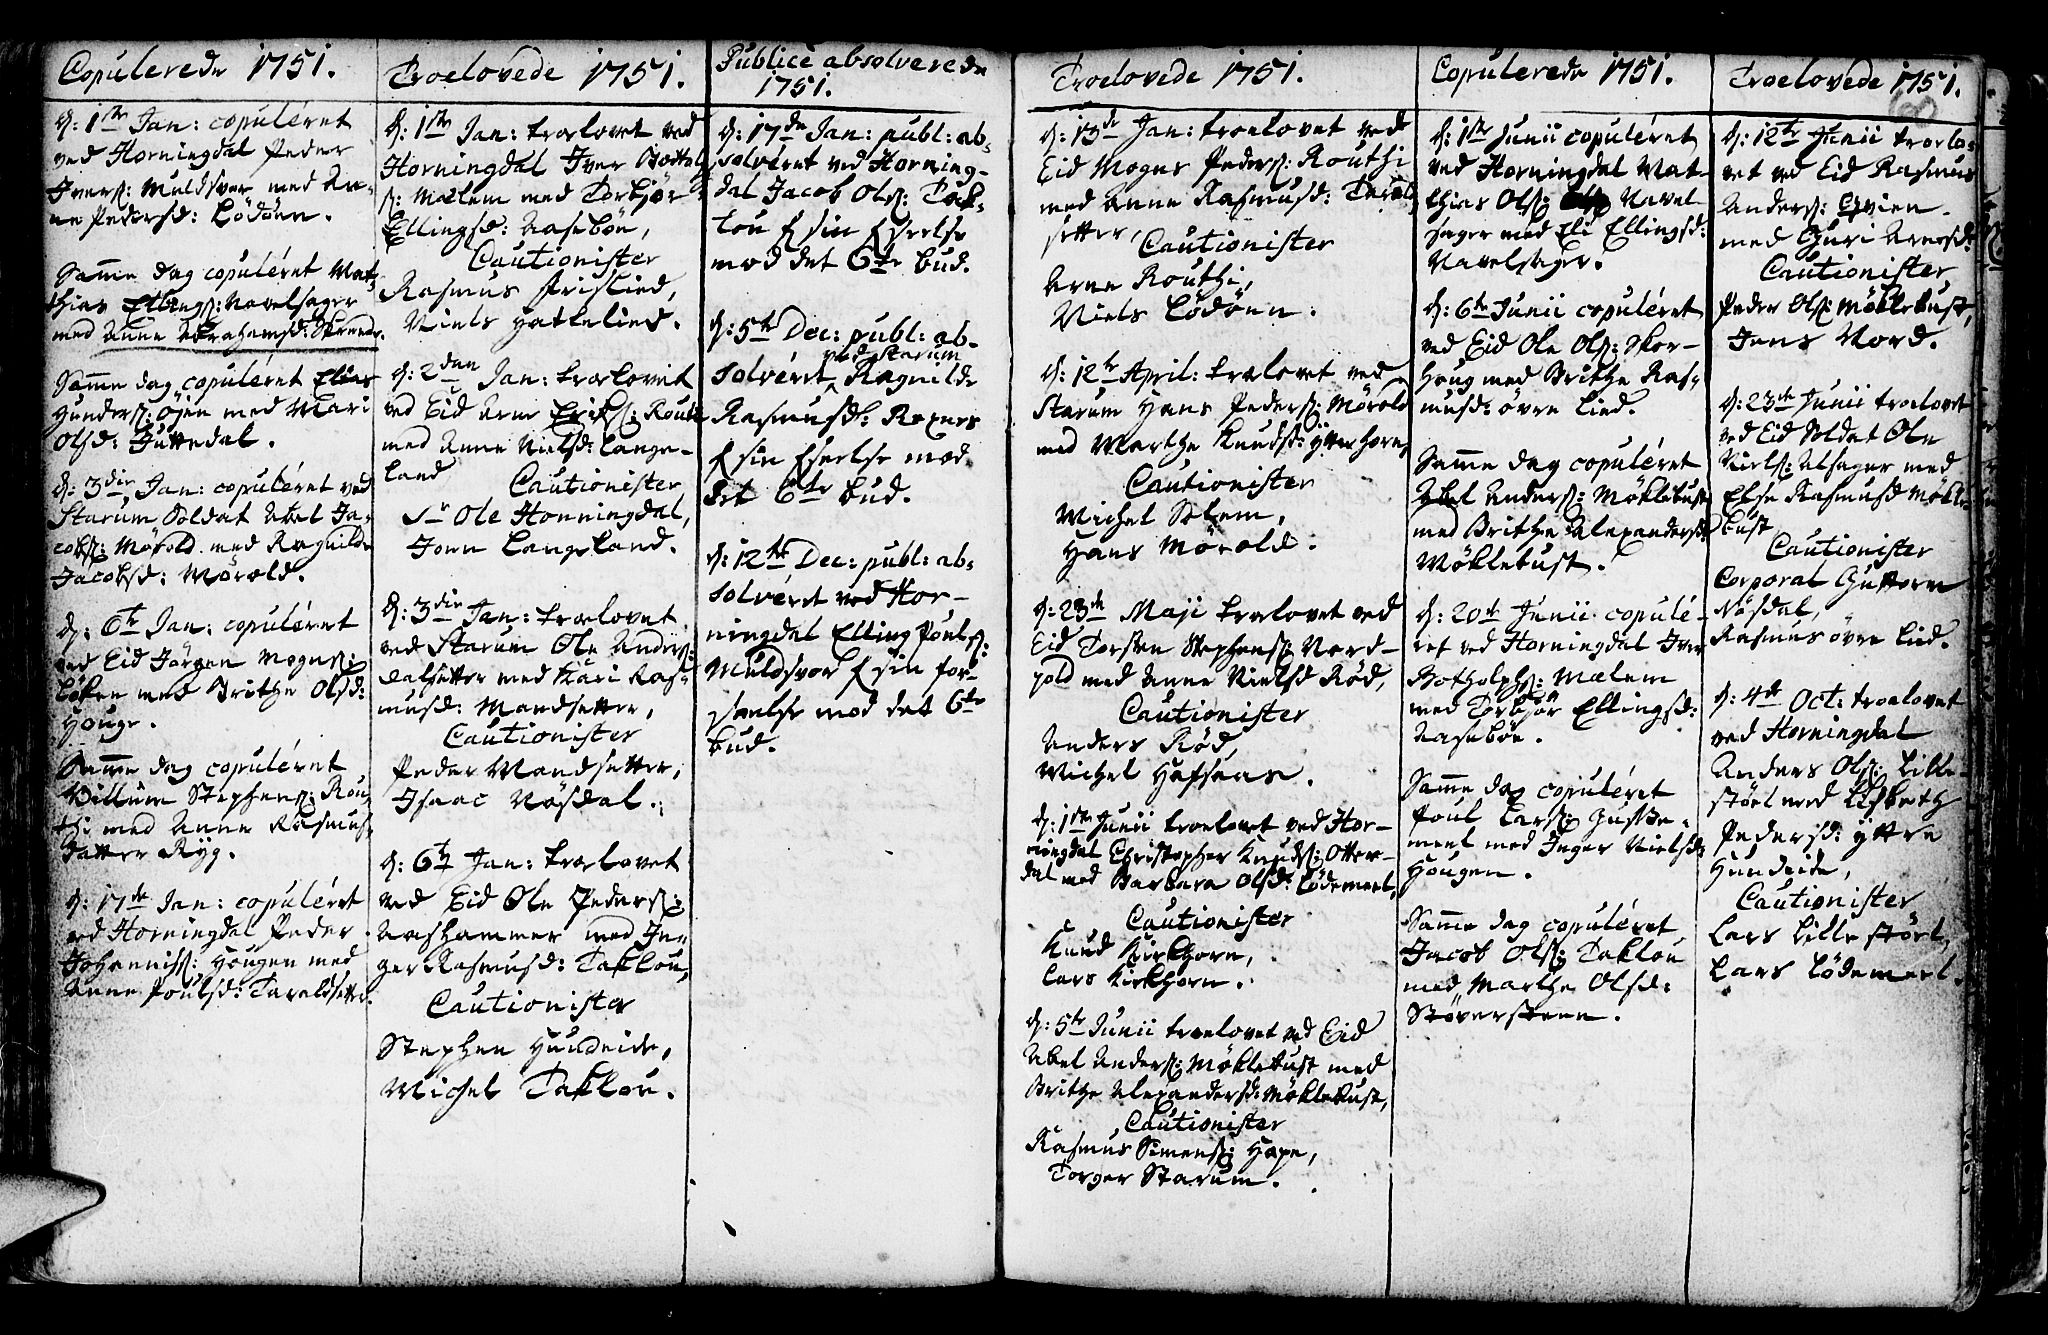 Copulerede 1751.
d: 1ste Jan: copuléret
ved Horningdal Peder
Iverss: Muldsvor med An-
ne Pedersd: Lødøen.
Samme dag copuléret Mat-
thias Ellings: Navelsager
med Anne Abrahamsd: Skrenes.
Samme dag copuléret Elias
Hunders: Øjen med Mari
Olsd: Juttedal.
d: 3die Jan: copuléret ved
Starum Soldat Abel Ja-
cobs: Mørold med Ragnilde
Jacobsd: Mørold.
d: 6te Jan: copuléret
ved Eid Jørgen Mogns:
Løken med Brithe Olsd:
Houge.
Samme dag copuléret
Villum Stephens: Rou-
thi med Anne Rasmus-
datter Ryg.
d: 17de Jan: copuléret
ved Horningdal Peder
Johanniss: Hougen med
Anne Poulsd: Taraldsetter.
Troelovede 1751.
d: 1ste Jan: troelovet ved
Horningdal Iver Bottolp
s: Mælem med Torbjør
Ellingsd: Aasebøe,
Cautionister
Rasmus Frislied,
Niels Hattelied.
d: 2den Jan: troelovet
ved Eid Arne Eriks: Routi
med Anne Nielsd: Lange-
land
Cautionister
Sr Ole Honningdal,
Joen Langeland.
d: 3die Jan: troelovet
ved Starum Ole Anders:
Dalsetter med Kari Ras-
musd: Mandsetter,
Cautionister
Peder Mandsetter,
Isaac Nøsdal.
d: 6te Jan: troelovet
ved Eid Ole Peders:
Aashammer med In-
ger Rasmusd: Taklou,
Cautionister
Stephen Hundeide,
Michel Taklou.
Publice absolverede
1751.
d: 17de Jan: publ: ab-
solvéret ved Horning-
dal Jacob Ols: Tak-
lou f sin Forseelse
mod det 6te bud.
d: 5te Dec: publ: ab-
ved Starum
solvéret Ragnilde
Rasmusd: Roxnes
f sin Forseelse mod
det 6te bud.
d: 12te Dec: publ: ab-
solvéret ved Hor-
ningdal Elling Pouls:
Muldsvor f sin for-
seelse mod det 6te
bud.
Troelovede 1751.
d: 13de Jan: troelovet ved
Eid Mogns Peders: Routhi
med Anne Rasmusd: Tarald
setter,
Cautionister
Arne Routhi,
Niels Lødøen.
d: 12te April: troelovet ved
Starum Hans Peders: Mørold
med Marthe Knudsd: ytterhorn,
Cautionister
Michel Solem,
Hans Mørold.
d: 23de Maji troelovet ved
Eid Torsten Stephens: Nord-
pold med Anne Nielsd Rød,
Cautionister
Anders Rød,
Michel Hafsaas.
d: 1ste Junii troelovet ved Hor-
ningdal Christopher Knuds: Otter-
dal med Barbara Olsd: Lødemeel,
Cautionister
Knud Kirkhorn,
Lars Kirkhorn.
d: 5te Junii troelovet ved Eid
Abel Anders: Møklebust med
Brithe Alexandersd: Møklebust,
Cautionister
Rasmus Simens: Hope,
Torger Starum.
Copulerede 1751.
d: 1ste Junii copuléret
ved Horningdal Mat-
thias Ols: Navel
sager med Eli Ellingsd:
Navelsager.
d: 6te Junii copuléret
ved Eid Ole Ols: Skor-
houg med Brithe Ras-
musd: øvre Lied.
Samme dag copuléret
Abel Anders: Møklebust
med Brithe Alexandersd:
Møklebust.
d: 20de Junii copulé-
ret ved Horningdal Iver
Botholphs: Mælem
med Torbjør Ellingsd:
Aasebøe.
Samme dag copuléret
Poul Lars: Gusde-
meel med Inger Nielsd:
Hougen.
Samme dag copuléret
Jacob Ols: Taklou
med Marthe Olsd:
Støversteen.
Troelovede 1751.
d: 12te Junii troelo-
vet ved Eid Rasmus
Anders: Qvien
med Guri Arnesd:
Cautionister
Peder Ols: Møklebust,
Jens Nord.
d: 23de Junii troelovet
ved Eid Soldat Ole
Niels: Alsager med
Else Rasmusd Møkle-
bust
Cautionister
Corporal Guttorm
Nøsdal,
Rasmus øvre Lied.
d: 4de Oct: troelovet
ved Horningdal
Anders Ols: Lille-
støel med Lisbeth
Pedersd: yttre
Hundeide,
Cautionister
Lars Lille støel,
Lars Lødemeel.